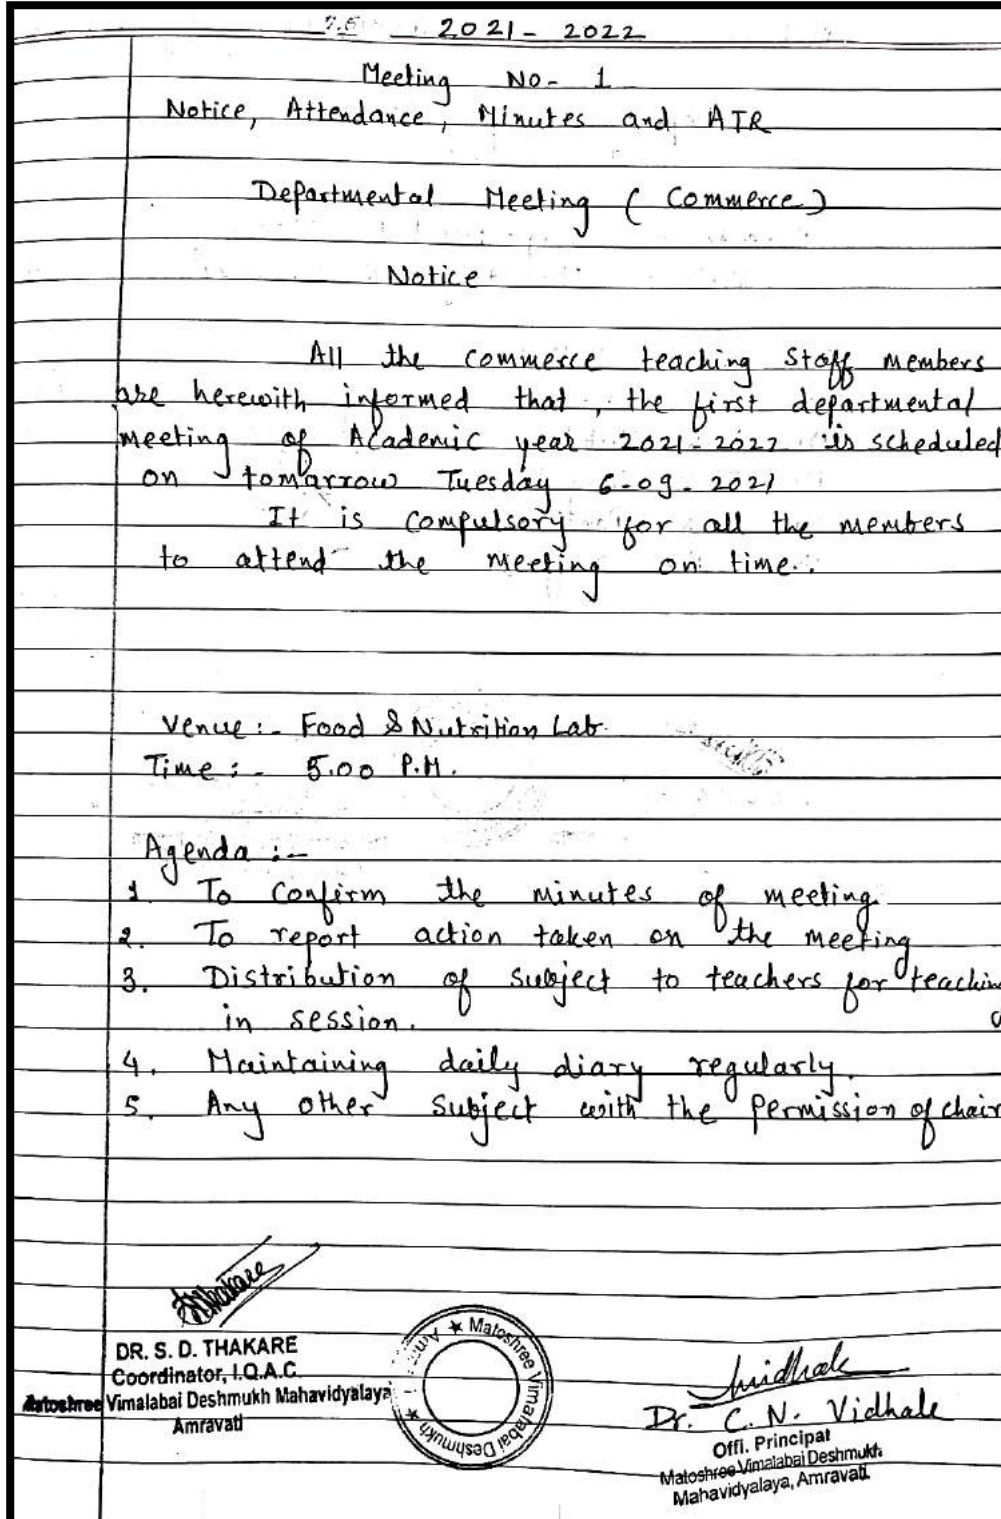 2021-2022
Meeting No- 1
Notice, Attendance, Minutes and ATR
Departmental Meeting (Commerce)
Notice
All the commerce teaching Staff members
are herewith informed that, the first departmental
meeting of Academic year 2021-2022 is scheduled
on tomarrow Tuesday 6-09-2021
It is compulsory for all the members
to attend the meeting on time.
Venue:- Food & Nutrition Lab.
Time:- 5.00 P.M.
Agenda:-
1. To Confirm the minutes of meeting.
2. To report action taken on the meeting
3. Distribution of subject to teachers for teaching
in session.
4. Maintaining daily diary regularly.
5. Any other subject with the permission of chair
Thakare
DR. S. D. THAKARE
Coordinator, I.Q.A.C.
Matoshree Vimalabai Deshmukh Mahavidyalaya
Amravati
★ Matoshree Vimalabai Deshmukh ★
Vidhale
Dr. C. N. Vidhale
Offi. Principal
Matoshree Vimalabai Deshmukh
Mahavidyalaya, Amravati.